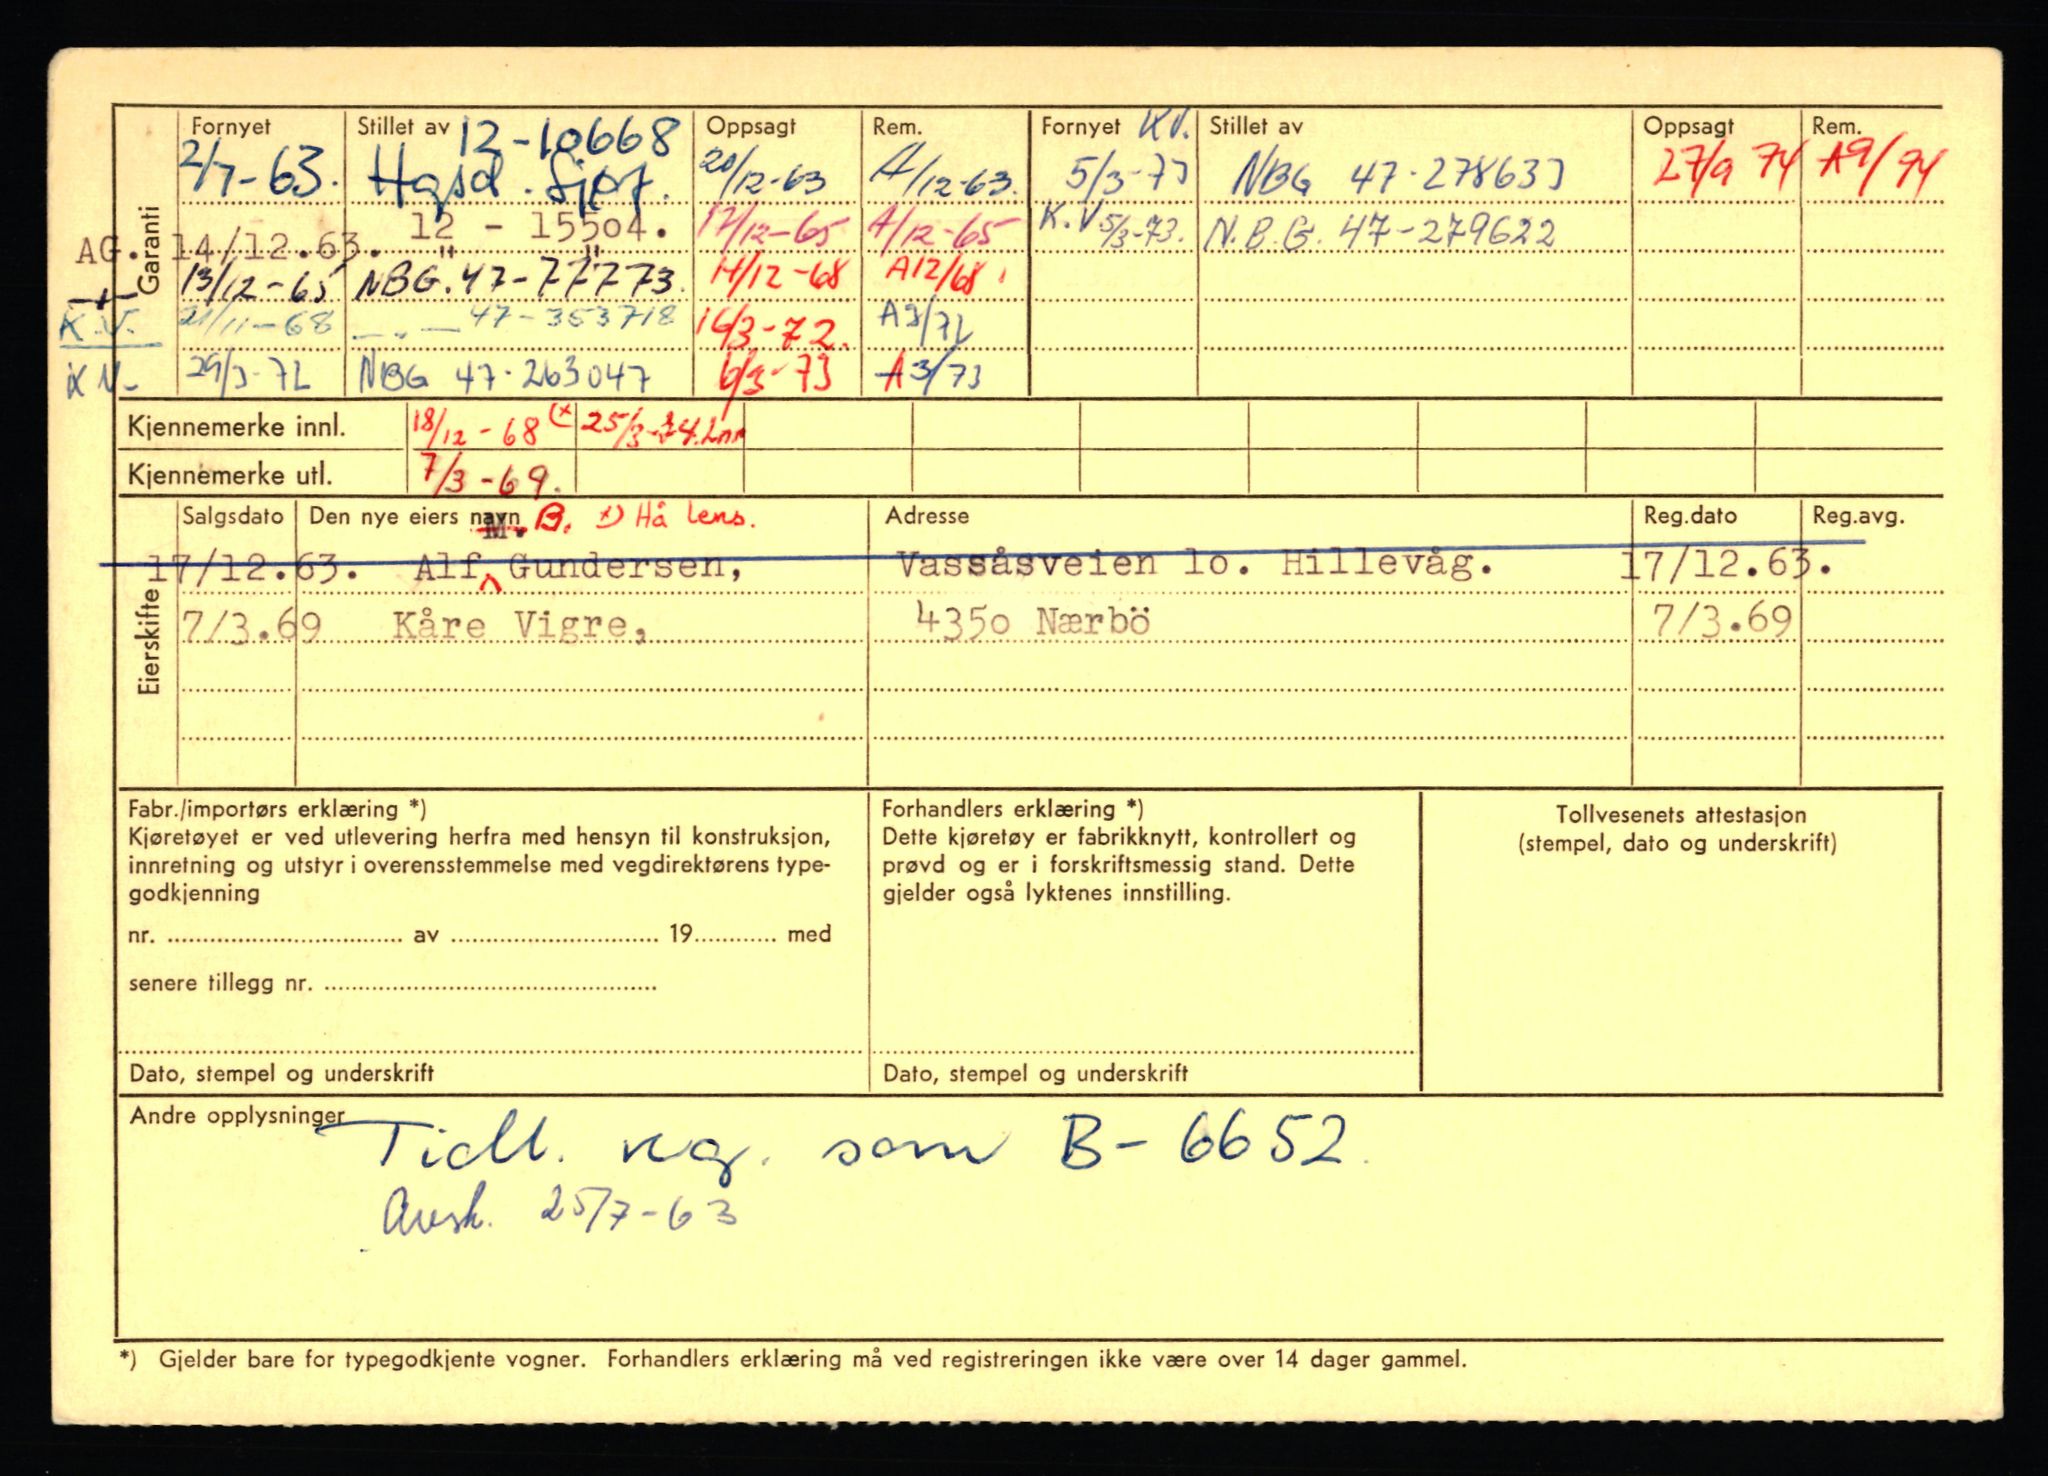 Garanti
Fornyet Stillet av 12-10668 Oppsagt Rem. Fornyet KV. Stillet av Oppsagt Rem.
2/7-63. Hgsd. Sjøf. 20/12-63 A/12-63. 5/3-73 NBG 47-278633 27/9 74 A9/74
AG. 14/12.63. 12 - 15504. 17/12-65 A/12-65 K.V 5/3-73. N.B.G. 47-279622
13/12-65 NBG. 47-77773. 14/12-68 A12/68
K.V. 21/11-68 — " — 47-353718 16/3-72. A3/72
KV- 29/3-72 NBG 47-263047 6/3-73 A3/73
Kjennemerke innl. 18/12-68 (x 25/3-74.
Kjennemerke utl. 7/3-69.
Eierskifte
Salgsdato Den nye eiers navn M. B. x) Hå lens. Adresse Reg.dato Reg.avg.
17/12.63. Alf Gundersen, Vassåsveien lo. Hillevåg. 17/12.63.
7/3.69 Kåre Vigre, 435o Nærbö 7/3.69
Fabr./importørs erklæring *)
Kjøretøyet er ved utlevering herfra med hensyn til konstruksjon,
innretning og utstyr i overensstemmelse med vegdirektørens type-
godkjenning
nr. .................... av .................... 19............ med
senere tillegg nr. ....................
Dato, stempel og underskrift
Forhandlers erklæring *)
Dette kjøretøy er fabrikknytt, kontrollert og
prøvd og er i forskriftsmessig stand. Dette
gjelder også lyktenes innstilling.
Dato, stempel og underskrift
Tollvesenets attestasjon
(stempel, dato og underskrift)
Andre opplysninger
Tidl. reg. som B-6652.
Avsk. 25/7-63
*) Gjelder bare for typegodkjente vogner. Forhandlers erklæring må ved registreringen ikke være over 14 dager gammel.